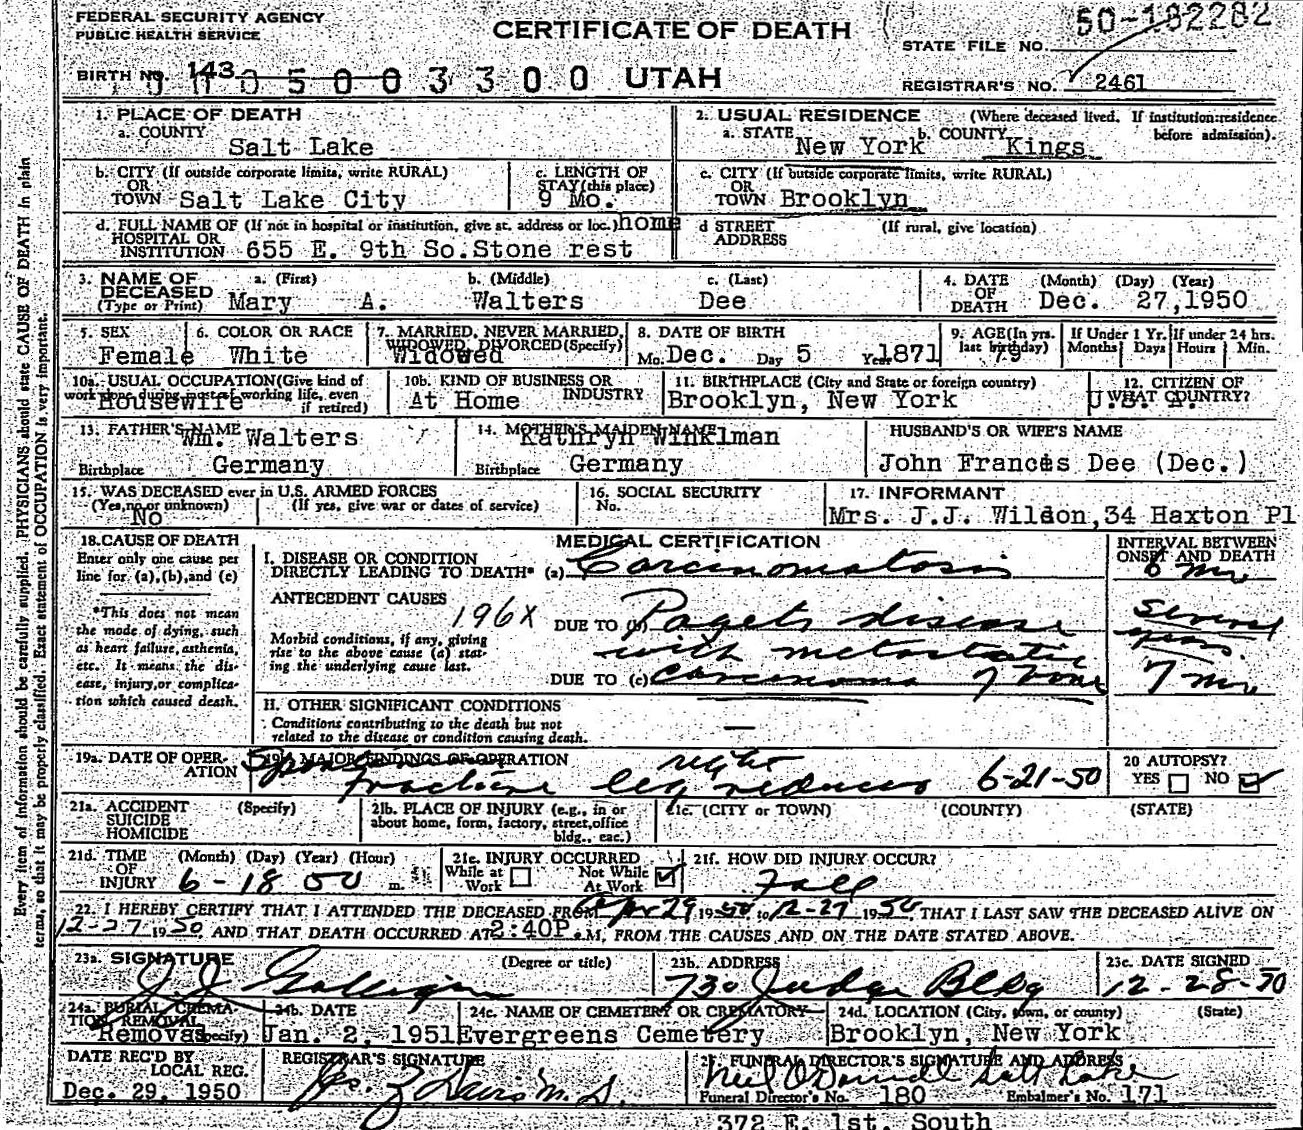 FEDERAL SECURITY AGENCY
PUBLIC HEALTH SERVICE
CERTIFICATE OF DEATH
50-182282
STATE FILE NO.
BIRTH NO. 143
0 5 0 0 3 3 0 0 UTAH
REGISTRAR'S NO. 2461
1. PLACE OF DEATH
a. COUNTY
Salt Lake
2. USUAL RESIDENCE (Where deceased lived. If institution: residence before admission).
a. STATE New York b. COUNTY Kings
b. CITY (If outside corporate limits, write RURAL)
OR TOWN Salt Lake City
c. LENGTH OF STAY (this place)
9 Mo.
c. CITY (If outside corporate limits, write RURAL)
OR TOWN Brooklyn
d. FULL NAME OF (If not in hospital or institution, give st. address or loc.) home
HOSPITAL OR INSTITUTION 655 E. 9th So. Stone rest
d STREET ADDRESS (If rural, give location)
3. NAME OF DECEASED (Type or Print)
a. (First) b. (Middle) c. (Last)
Mary A. Walters Dee
4. DATE OF DEATH (Month) (Day) (Year)
Dec. 27, 1950
5. SEX
Female
6. COLOR OR RACE
White
7. MARRIED, NEVER MARRIED, WIDOWED, DIVORCED (Specify)
Widowed
8. DATE OF BIRTH
Mo. Dec. Day 5 Year 1871
9. AGE (In yrs. last birthday)
79
If Under 1 Yr. Months Days
If under 24 hrs. Hours Min.
10a. USUAL OCCUPATION (Give kind of work done during most of working life, even if retired)
Housewife
10b. KIND OF BUSINESS OR INDUSTRY
At Home
11. BIRTHPLACE (City and State or foreign country)
Brooklyn, New York
12. CITIZEN OF WHAT COUNTRY?
U.S. A.
13. FATHER'S NAME
Wm. Walters
Birthplace Germany
14. MOTHER'S MAIDEN NAME
Kathryn Winklman
Birthplace Germany
HUSBAND'S OR WIFE'S NAME
John Francis Dee (Dec.)
15. WAS DECEASED ever in U.S. ARMED FORCES
(Yes, no or unknown) (If yes, give war or dates of service)
No
16. SOCIAL SECURITY No.
17. INFORMANT
Mrs. J.J. Wildon, 34 Haxton Pl
18. CAUSE OF DEATH
Enter only one cause per line for (a), (b), and (c)
*This does not mean the mode of dying, such as heart failure, asthenia, etc. It means the disease, injury, or complication which caused death.
MEDICAL CERTIFICATION
INTERVAL BETWEEN ONSET AND DEATH
I. DISEASE OR CONDITION
DIRECTLY LEADING TO DEATH* (a) Carcinomatosis 6 mo
ANTECEDENT CAUSES
196X
DUE TO (b) Pagets disease several years.
Morbid conditions, if any, giving rise to the above cause (a) stating the underlying cause last.
with metastatic
DUE TO (c) carcinoma of bone 7 mo
II. OTHER SIGNIFICANT CONDITIONS
Conditions contributing to the death but not related to the disease or condition causing death.
—
19a. DATE OF OPERATION
19b. MAJOR FINDINGS OF OPERATION
right
fracture leg reduced 6-21-50
20 AUTOPSY?
YES NO
21a. ACCIDENT SUICIDE HOMICIDE (Specify)
21b. PLACE OF INJURY (e.g., in or about home, form, factory, street, office bldg., eac.)
21c. (CITY or TOWN) (COUNTY) (STATE)
21d. TIME OF INJURY (Month) (Day) (Year) (Hour)
6-18 50 m.
21e. INJURY OCCURRED
While at Work Not While At Work
21f. HOW DID INJURY OCCUR?
Fall
22. I HEREBY CERTIFY THAT I ATTENDED THE DECEASED FROM Apr 29 1950 to 12-27 1950, THAT I LAST SAW THE DECEASED ALIVE ON
12-27 1950, AND THAT DEATH OCCURRED AT 2:40P.M, FROM THE CAUSES AND ON THE DATE STATED ABOVE.
23a. SIGNATURE (Degree or title)
J. J. Galligan
23b. ADDRESS
730 Judge Bldg
23c. DATE SIGNED
12-28-50
24a. BURIAL, CREMATION, REMOVAL (Specify)
Removal
24b. DATE
Jan. 2, 1951
24c. NAME OF CEMETERY OR CREMATORY
Evergreens Cemetery
24d. LOCATION (City, town, or county) (State)
Brooklyn, New York
DATE REC'D BY LOCAL REG.
Dec. 29, 1950
REGISTRAR'S SIGNATURE
Davis M. D.
FUNERAL DIRECTOR'S SIGNATURE AND ADDRESS
Neil O'Donnell Salt Lake
Funeral Director's No. 180 Embalmer's No. 171
372 E. 1st. South
Every item of information should be carefully supplied. PHYSICIANS should state CAUSE OF DEATH in plain
terms, so that it may be properly classified. Exact statement of OCCUPATION is very important.